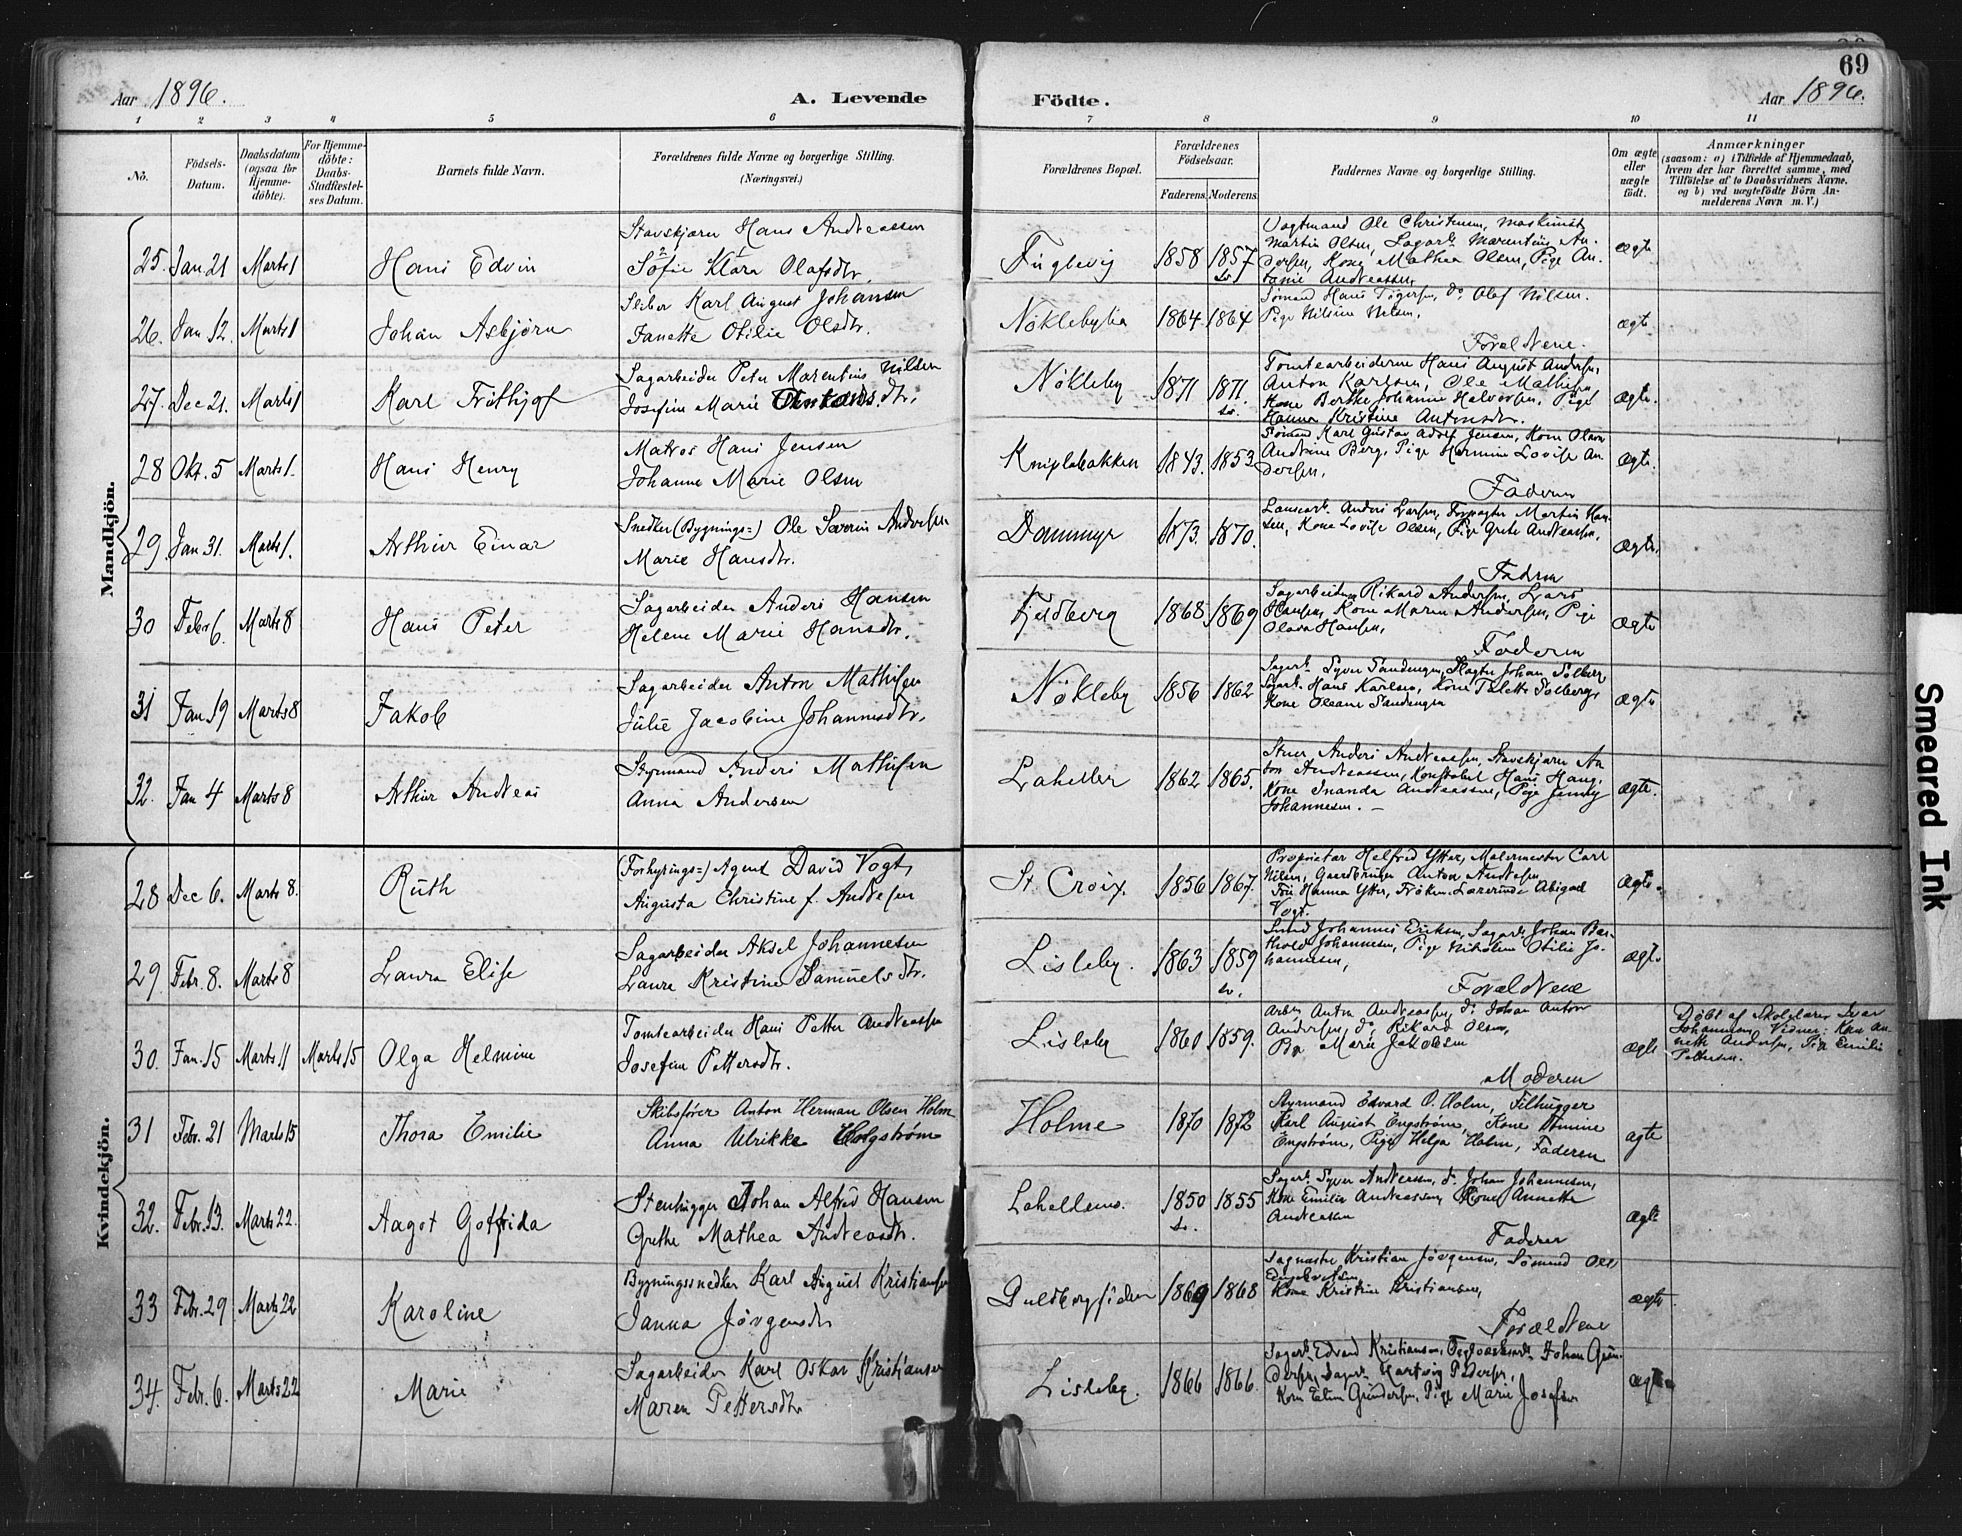 69
Aar 1896. A. Levende Födte. Aar 1896.
1 2 3 4 5 6 7 8 9 10 11
No.
Födsels-
Datum.
Daabsdatum
(ogsaa for
Hjemme-
döbte).
For Hjemme-
döbte:
Daabs-
Stadfæstel-
ses Datum.
Barnets fulde Navn.
Forældrenes fulde Navne og borgerlige Stilling.
(Næringsvei.)
Forældrenes Bopæl.
Forældrenes
Födselsaar.
Faderens Moderens
Faddernes Navne og borgerlige Stilling.
Om ægte
eller
uægte
födt.
Anmærkninger
(saasom: a) i Tilfælde af Hjemmedaab,
hvem der har forrettet samme, med
Tilföielse af to Daabsvidners Navne,
og b) ved uægtefödte Börn An-
melderens Navn m. V.)
Mandkjön.
25. Jan 21 Marts 1 Hans Edvin
Stavskjærer Hans Andreassen
Sofie Klara Olafsdtr.
Fuglevig 1858 1857
Vogtmand Ole Christensen, Maskinist
Martin Olsen, Sagarb. Marentius An-
dersen, Kone Mathea Olsen, Pige An-
tonie Andreassen
ægte
26. Jan 12. Marts 1 Johan Asbjørn
Sliber Karl August Johansen
Janette Otilie Olsdtr.
Nøklebylia 1864 1864
Sømand Hans Tøgersen, do Olaf Nilsen.
Pige Nilsine Nilsen.
Forældrene.
ægte
27. Dec 21. Marts 1 Karl Frithjof
Sagarbeider Peter Marentius Nilsen
Josefine Marie Antonsdtr.
Nøkleby 1871 1871.
Tomtearbeiderne Hans August Andersen,
Anton Karlsen, Ole Mathisen,
Kone Berthe Johanne Halvorsen, Pige
Hanna Kristine Antonsdtr.
ægte.
28 Okt. 5 Marts 1. Hans Henry
Matros Hans Jensen
Johanne Marie Olsen
Kniplebakken 1843. 1853
Sømand Karl Gustav Adolf Jensen, Kone Olava
Andrine Berg, Pige Hermine Lovise An-
dersen,
Faderen
ægte.
29. Jan 31. Marts 1. Arthur Einar
Snedker (Bygnings-) Ole Severin Andersen
Marie Hansdtr.
Dammyr 1873. 1870.
Anders Larsen, Forpagter Martin Han-
sen, Kone Lovise Olsen, Pige Grete Andreassen,
Faderen
ægte.
30 Febr 6. Marts 8 Hans Peter
Sagarbeider Anders Hansen
Helene Marie Hansdtr.
Fjeldberg 1868 1869
Sagarbeiderne Rikard Andersen, Lars
Hansen, Kone Maren Andersen, Pige
Olava Hansen,
Faderen
ægte
31 Jan 19 Marts 8 Jakob
Sagarbeider Anton Mathisen
Julie Jacobine Johannesdtr.
Nøkleby 1856 1862
Sagarb. Syver Sandengen, Slagter Johan Solberg,
Sagarb. Hans Karlsen, Kone Talette Solberg,
Kone Oleane Sandengen
ægte
32. Jan 4 Marts 8 Arthur Andreas
Styrmand Anders Mathisen
Anna Andersen
Lahelller 1862 1865.
Stuer Anders Andreassen, Stavskjærer An-
ton Andreassen, Konstabel Hans Haug,
Kone Inanda Andreassen, Pige Jenny
Johannesen. —
ægte.
Kvindekjön.
28 Dec 6. Marts 8. Ruth
(Forhyrings-) Agent David Vogt
Augusta Christine f. Andersen
St. Croix. 1856 1867.
Proprietær Helfred Ytter, Malermester Carl
Nilsen, Gaardbruger Anton Andersen
Fru Hanna Ytter, Frøken Abigael
Vogt.
Ægte.
29. Febr. 8. Marts 8 Laura Elise
Sagarbeider Aksel Johannesen
Laura Kristine Samuelsdtr.
Lisleby. 1863 1859
Smed Johannes Eriksen, Sagarb. Johan Bar-
thold Johannesen, Pige Nikoline Otilie Jo-
hannesen,
Forældrene
ægte
30. Jan. 15 Marts 11 Marts 15 Olga Helmine
Tomtearbeider Hans Petter Andreassen
Josefine Pettersdtr.
Lisleby 1860 1859.
Arb. Anton Andreassen, do Johan Anton
Andersen, do Rikard Olsen,
Pige Marie Jakobsen
Moderen
ægte
Døbt af Skolelærer Ivar
Johannesen Vidner: Kone An-
nette Andersen, Pige Emilie
Pettersen.
31 Febr. 21 Marts 15 Thora Emilie
Skibsfører Anton Herman Olsen Holm
Anna Ulrikke Engstrøm
Holme 1870 1872
Styrmand Edvard O. Holm, Filhugger
Karl August Engstrøm, Kone Amine
Engstrøm, Pige Helga Holm, Faderen
ægte
32. Febr. 13. Marts 22. Aagot Gotfrida
Stenhugger Johan Alfred Hansen
Grethe Mathea Andreasdtr.
Lahellemo. 1850 1855
Sagarb. Syver Andreassen, do Johan Johannesen,
Kone Emilie Andreassen, Kone Annette
Andreasen
Faderen
ægte
33 Febr. 29 Marts 22 Karoline
Bygningssnedker Karl August Kristiansen
Janna Jørgensdtr
Guldbergsiden 1869 1868
Sagmester Kristian Jørgensen, Sømand Ole
Engebretsen,
Kone Kristine Kristiansen,
Forældrene
ægte
34. Febr. 6. Marts 22 Marie
Sagarbeider Karl Oskar Kristiansen
Maren Pettersdtr
Lisleby. 1866 1866.
Sagarb. Edvard Kristiansen, Teglværksarb. Johan Gun-
dersen, Sagarb. Hartvig Pedersen,
Kone Elin Gundersen, Pige Marie Josefsen
ægte
Smeared Ink